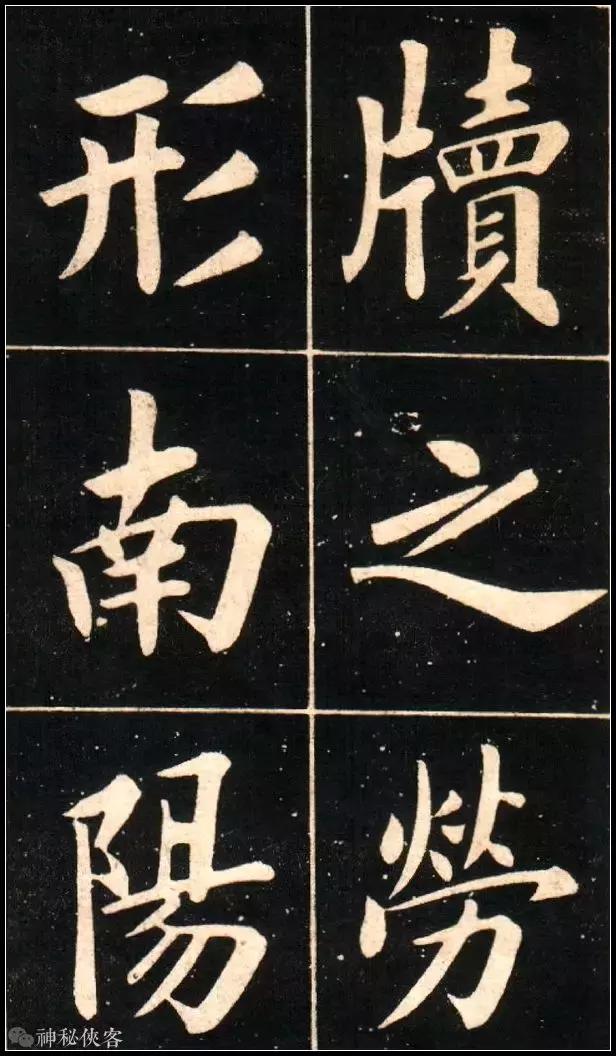 牘之勞
形南陽
神秘俠客